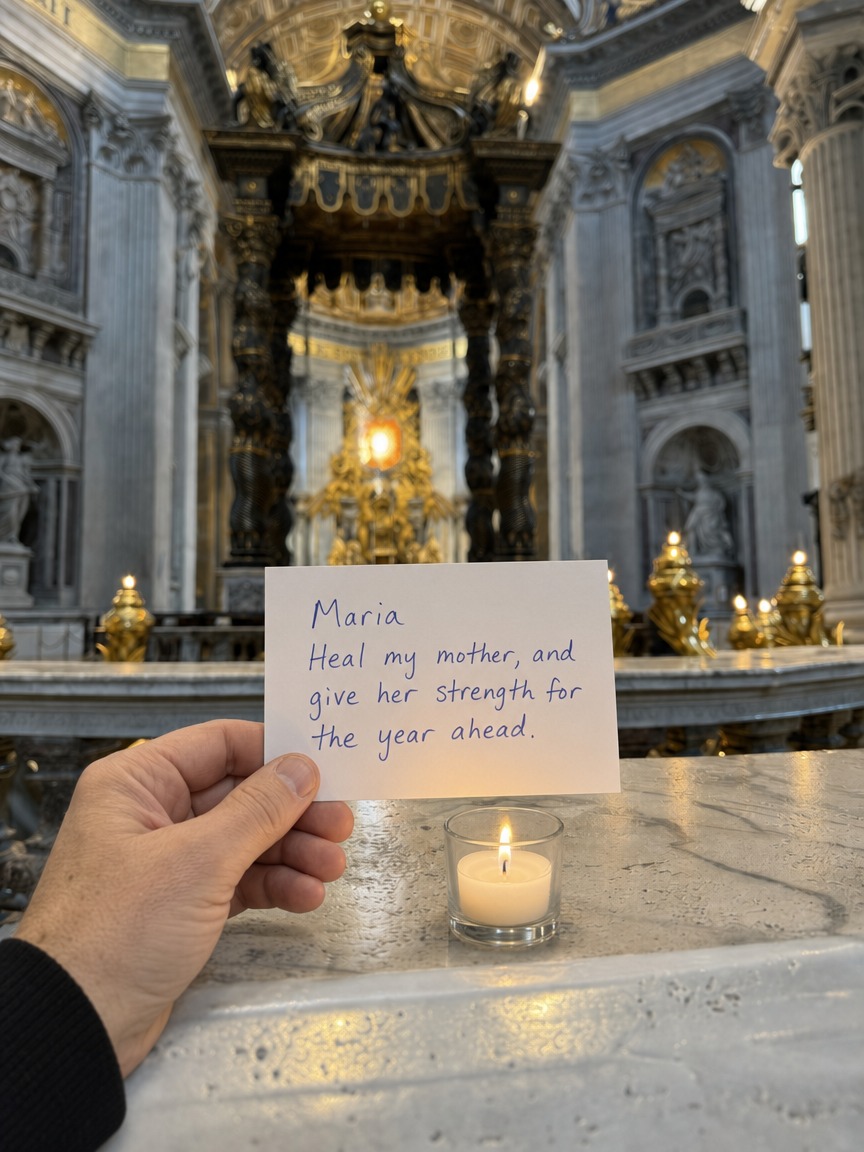 Maria
Heal my mother, and
give her strength for
the year ahead.